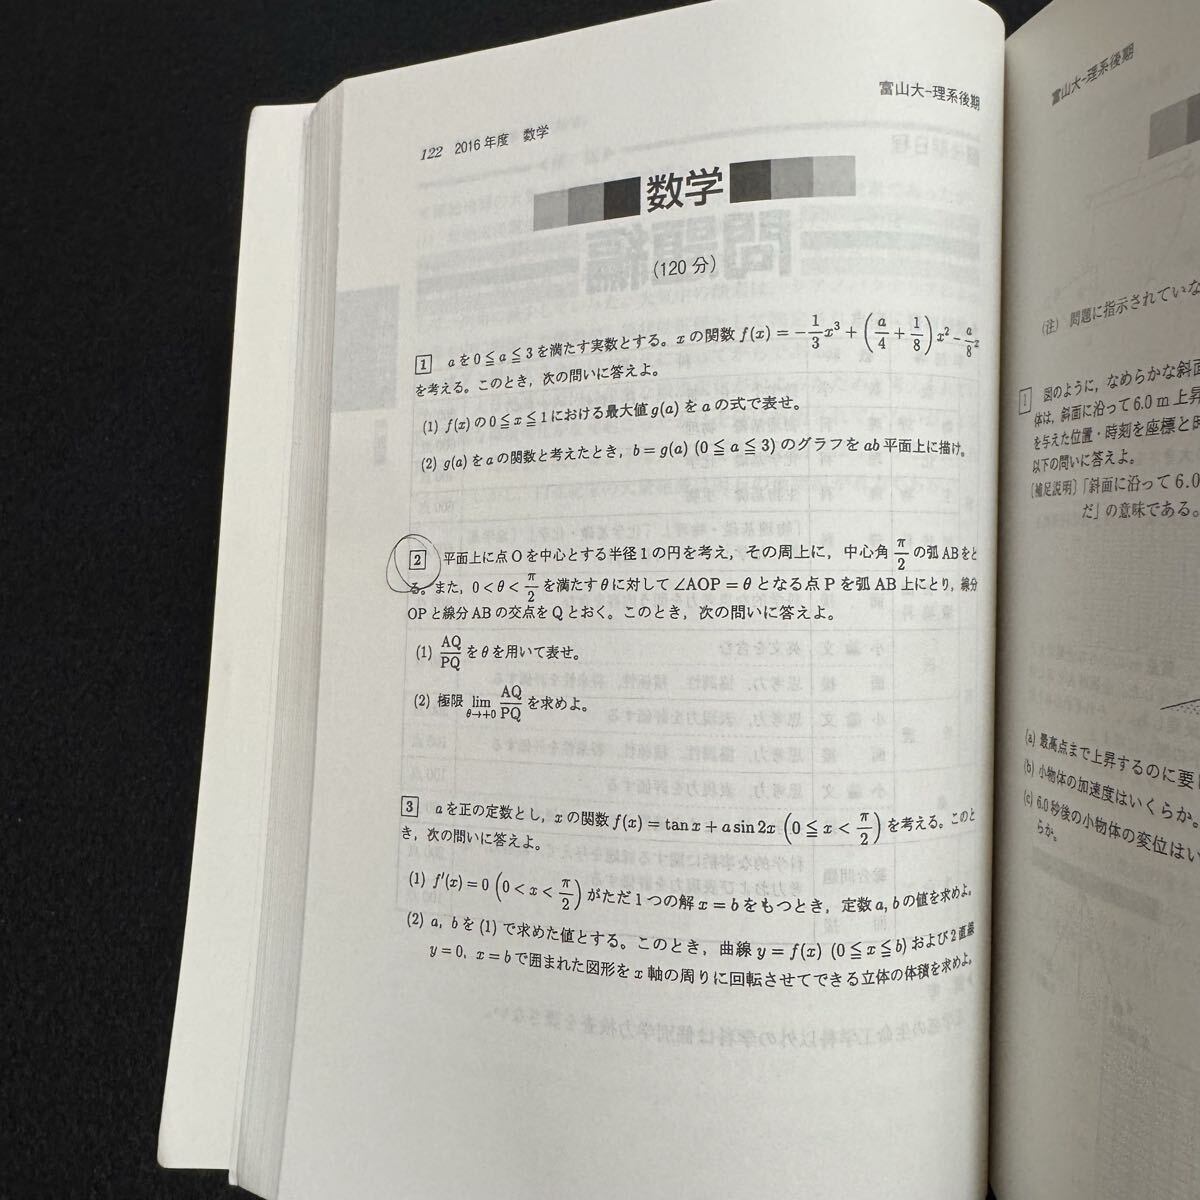 122 2016年度 数学
富山大-理系後期
数学
(120分)
1 aを0≦a≦3を満たす実数とする。xの関数 f(x)=−1/3x³+(a/4+1/8)x²−a/8x
を考える。このとき，次の問いに答えよ。
(1) f(x)の0≦x≦1における最大値g(a)をaの式で表せ。
(2) g(a)をaの関数と考えたとき，b=g(a) (0≦a≦3)のグラフをab平面上に描け。
2 平面上に点Oを中心とする半径1の円を考え，その周上に，中心角π/2の弧ABをと
る。また，0<θ<π/2を満たすθに対して∠AOP=θとなる点Pを弧AB上にとり，線分
OPと線分ABの交点をQとおく。このとき，次の問いに答えよ。
(1) AQ/PQをθを用いて表せ。
(2) 極限 lim θ→+0 AQ/PQを求めよ。
3 aを正の定数とし，xの関数f(x)=tan x+a sin 2x (0≦x<π/2)を考える。このと
き，次の問いに答えよ。
(1) f′(x)=0 (0<x<π/2)がただ1つの解x=bをもつとき，定数a, bの値を求めよ。
(2) a, bを(1)で求めた値とする。このとき，曲線y=f(x) (0≦x≦b)および2直線
y=0, x=bで囲まれた図形をx軸の周りに回転させてできる立体の体積を求めよ。
富山大-理系後期
(注) 問題に指示されていな
1 図のように，なめらかな斜面
体は，斜面に沿って6.0m上昇
を与えた位置・時刻を座標と時
以下の問いに答えよ。
〔補足説明〕「斜面に沿って6.0
だ」の意味である。
(a) 最高点まで上昇するのに要
(b) 小物体の加速度はいくらか。
(c) 6.0秒後の小物体の変位はい
らか。